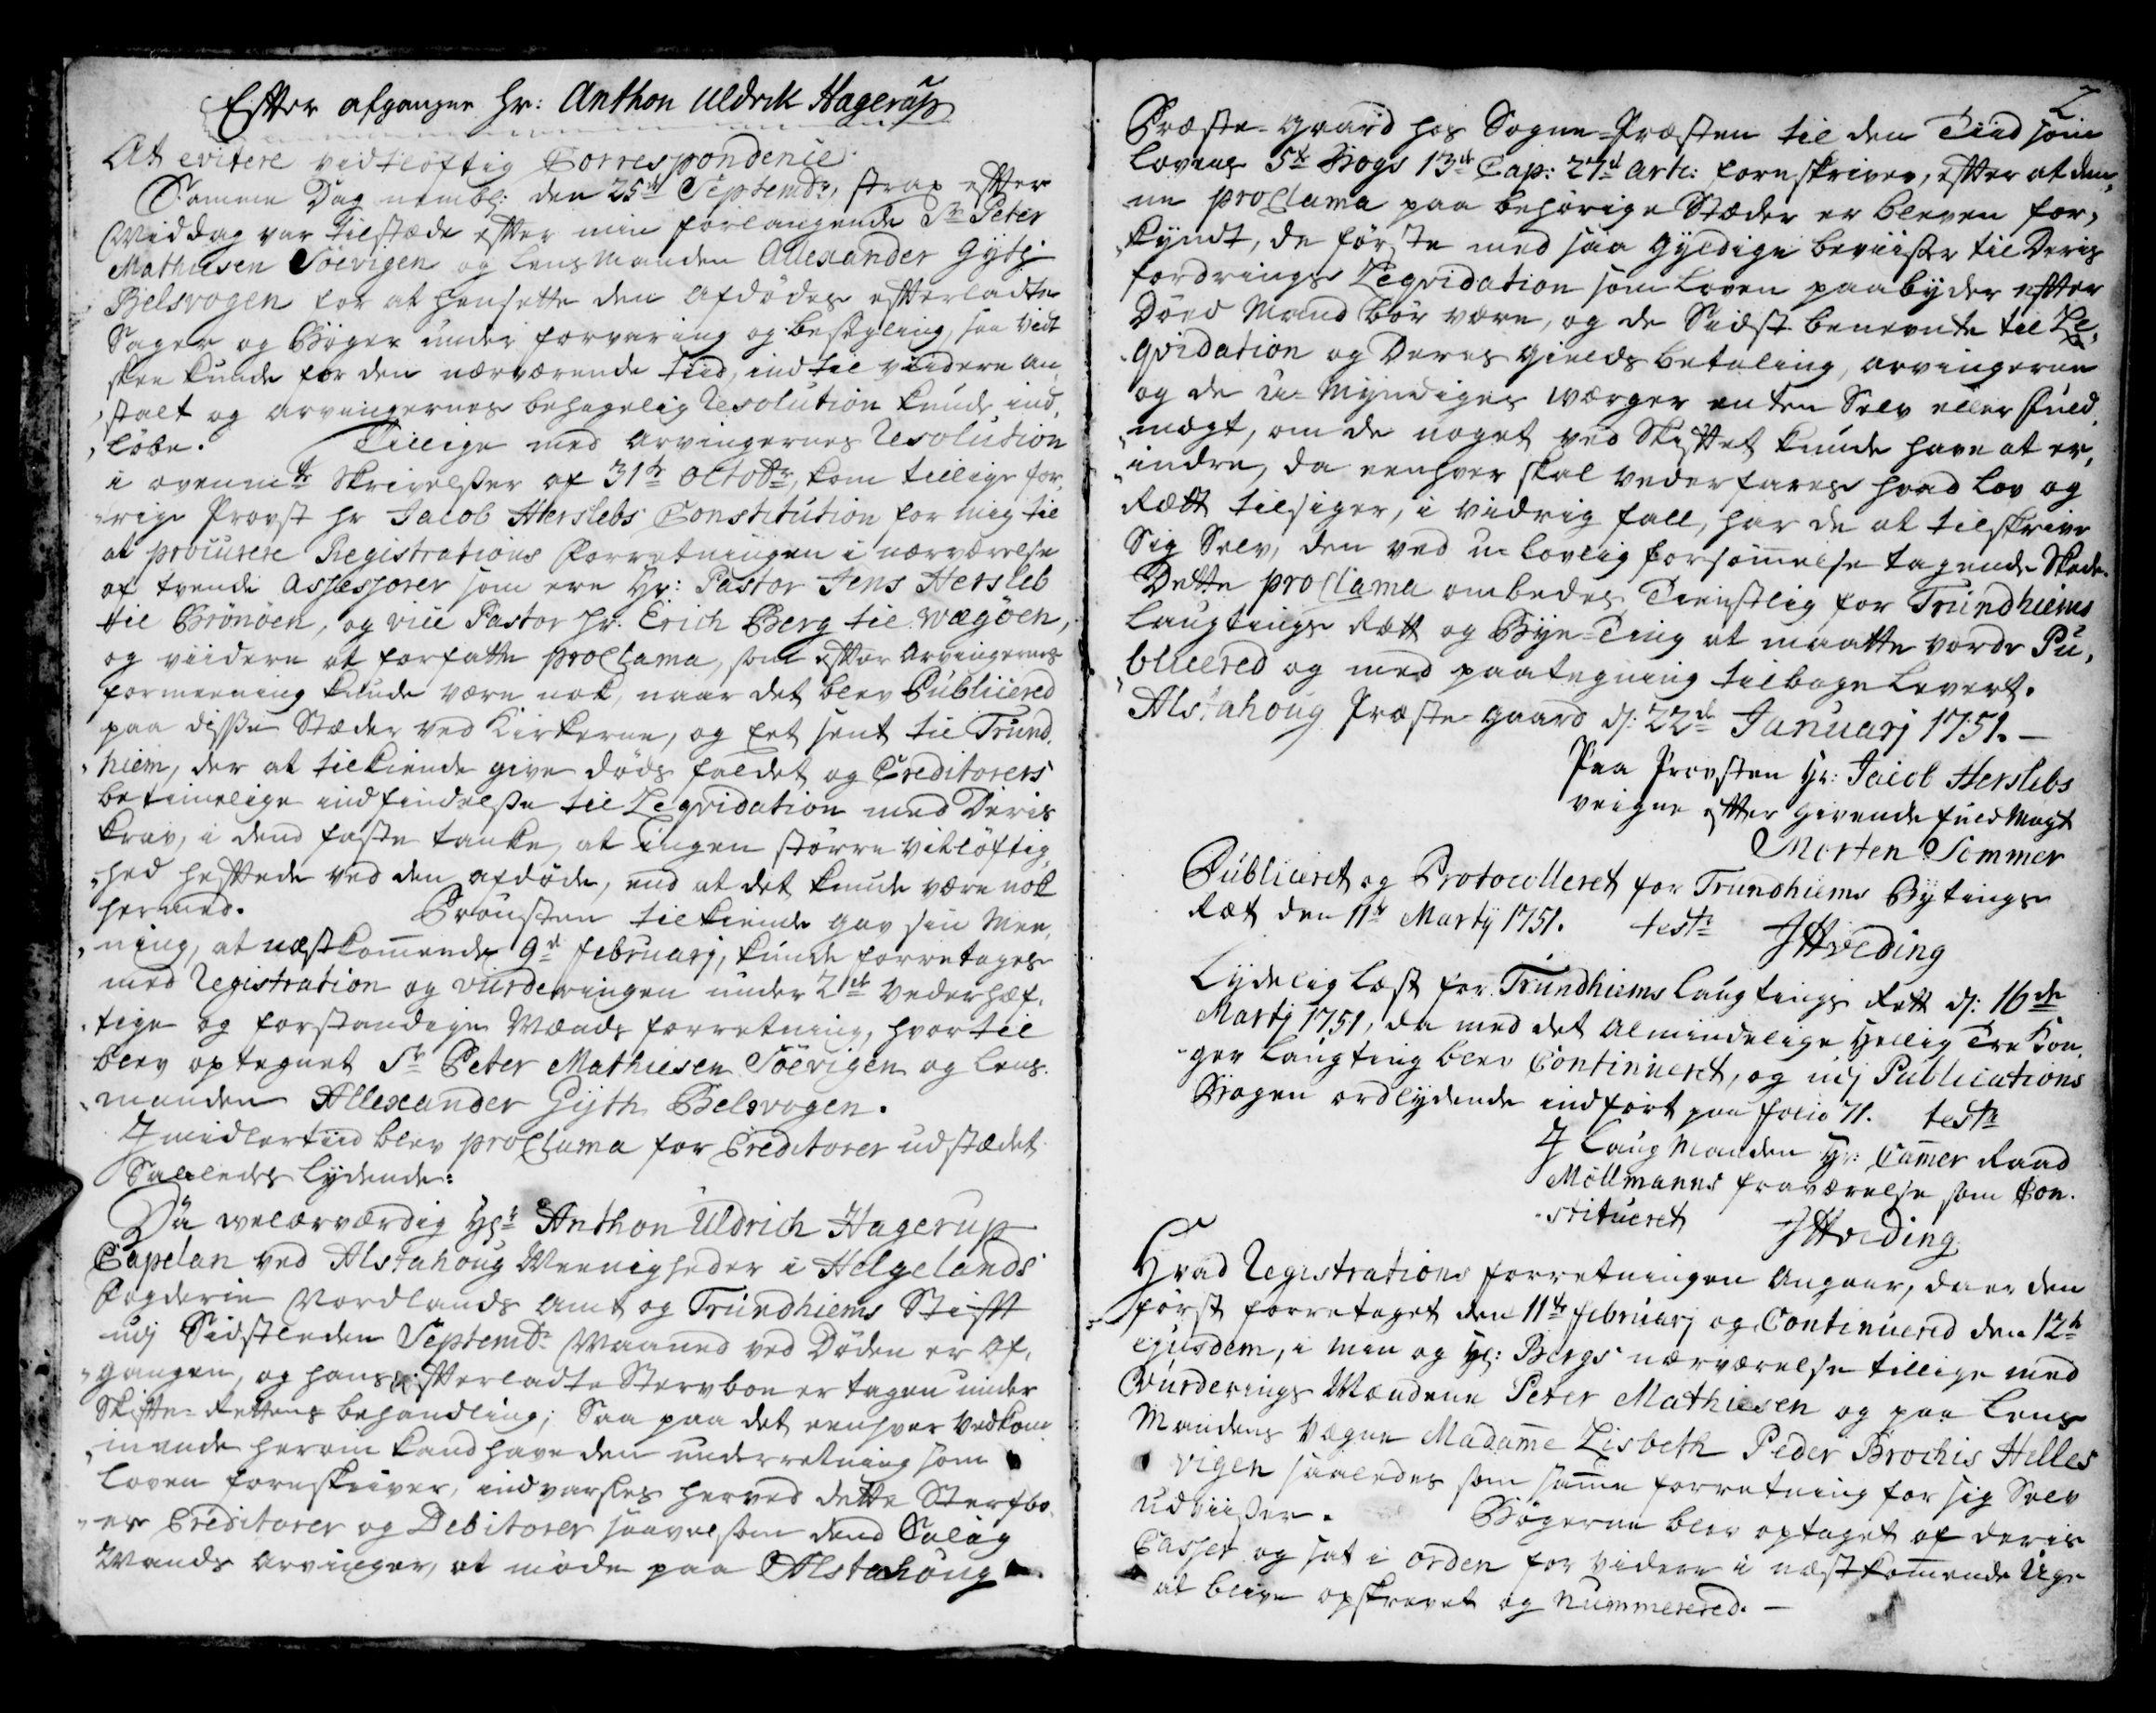 Efter afgangne Hr: Anthon Uldrik Hagerup
At evitere vidtløftig Correspondence.
Samme Dag nembl: den 25de Septembr, strax efter
Middag var tilstæde efter min forlangende Sr Peter
Mathiesen Søevigen og Lensmanden Allexander Gyth
Belsvogen for at hensette den afdødes efterladte
Sager og Bøger under forvaring og beseyling, saa vidt
skee kunde for den nærværende tiid, indtil viidere an,
stalt og arvingernes behagelig Resolution kunde ind,
løbe. Tillige med arvingernes Resolution
i ovennte Skrivelser af 31te Octobr, kom tillige for,
rige Provst hr Jacob Herslebs Constitution for mig til
at procurere Registrations Forretningen i nærværelse
af tvende assessorer som ere Hr: Pastor Jens Hersleb
til Brønøen, og vice Pastor Hr. Erich Berg til Vægøen,
og viidere at forfatte proclama, som efter Arvingernes
formeening kunde være nok, naar det blev Publicered
paa disse Stæder ved Kirkerne, og Eet sent til Trund,
hiem, der at tilkiende give døds faldet og Creditorers
betimelige indfindelse til Leqvidation med Deris
krav, i dend faste tanke, at ingen større vitløftig,
hed heftede ved den afdøde, end at det kunde være nok
hermed. Prousten tilkiende gav sin Mee,
ning, at næstkom̄ende 9de Februarj, kunde forretages
med Registration og vurderingen under 2de vederhæf,
tige og forstandige Mænds forretning, hvortil
blev optegnet Sr Peter Mathiesen Søevigen og Lens
manden Allexander Gyth Belsvogen.
Imidlertiid blev proclama for Creditorer udstædet
Saaledes lydende:
Da velærværdig Hr: Anthon Uldrich Hagerup
Capelan ved Alstahoug Meenigheder i Helgelands
Fogderie Nordlands Amt og Trundhiems Stift
udj Sidstleden Septembr Maaned ved Døden er Af,
gangen, og hans efterladte Stervboe er tagen under
Skifte-Rettens behandling; Saa paa det eenhver vedkom
mende herom kand have den underretning som
Loven foreskriver, indvarsles herved dette Sterfbo,
es Creditorer og Debitorer saavelsom dend Salig
Mands Arvinger, at møde paa Alstahoug
2
Præste-Gaard hos Sogne-Præsten til den Tiid som
Lovens 5te Bogs 13de Cap: 27de Artic: foreskriver, efter at den,
ne proclama paa behørige Stæder er bleven for,
kyndt, de første med saa gyldige beviiser til Deris
fordrings Leqvidation som Loven paabyder efter
Død Mand bør være, og de Sidst benevnte til Le,
qvidation og Deres gields betaling, arvingerne
og de U-Myndiges værger enten Selv eller Fuld,
mægt, om de noget ved Skiftet kunde have at er,
indre, da eenhver skal vederfares hvad Lov og
Rætt tilsiger, i vidrig fall, har de at tilskrive
Sig Selv, den ved u-lovlig forsøm̄else tagende Skade.
Dette proclama ombedes Tienstlig for Trundhiems
Laugtings Rætt og Bye-Ting at maatte vorde Pu,
blicered og med paategning tilbage levert.
Alstahoug Præste-gaard d: 22de Januarj 1751.
Paa Provsten Hr: Jacob Herslebs
veigne efter givende fuldmagt
Morten Sommer
Publiceret og Protocolleret for Trundhiems Bytings
Ræt den 11te Martij 1751. testr JHveding
Lydelig læst for Trundhiems Laugtings Rett d: 16de
Martj 1751, da med det almindelige Hellig Tre Kon,
ger Laugting blev Continueret, og udj Publications
Bogen ordlydende indført paa folio 71. testr
I Laug Manden Hr: Cam̄er Raad
Möllmanns fraværelse som Con,
stitueret JHveding
Hvad Registrations Forretningen Angaar, da er den
først forretaget den 11te Februarj og Continuered den 12te
ejusdem, i min og Hr: Bergs nærværelse tillige med
Vurderings Mændene Peter Mathiesen og paa Lens
Mandens Vegne Madam̄e Lisbeth Peder Brochis Helles
vigen saaledes som sam̄e forretning for sig Selv
udviiser. Bøgerne blev optaget af deris
Casser og sat i orden for videre i næstkom̄ende Uge
at blive opskrevet og Nummerered.